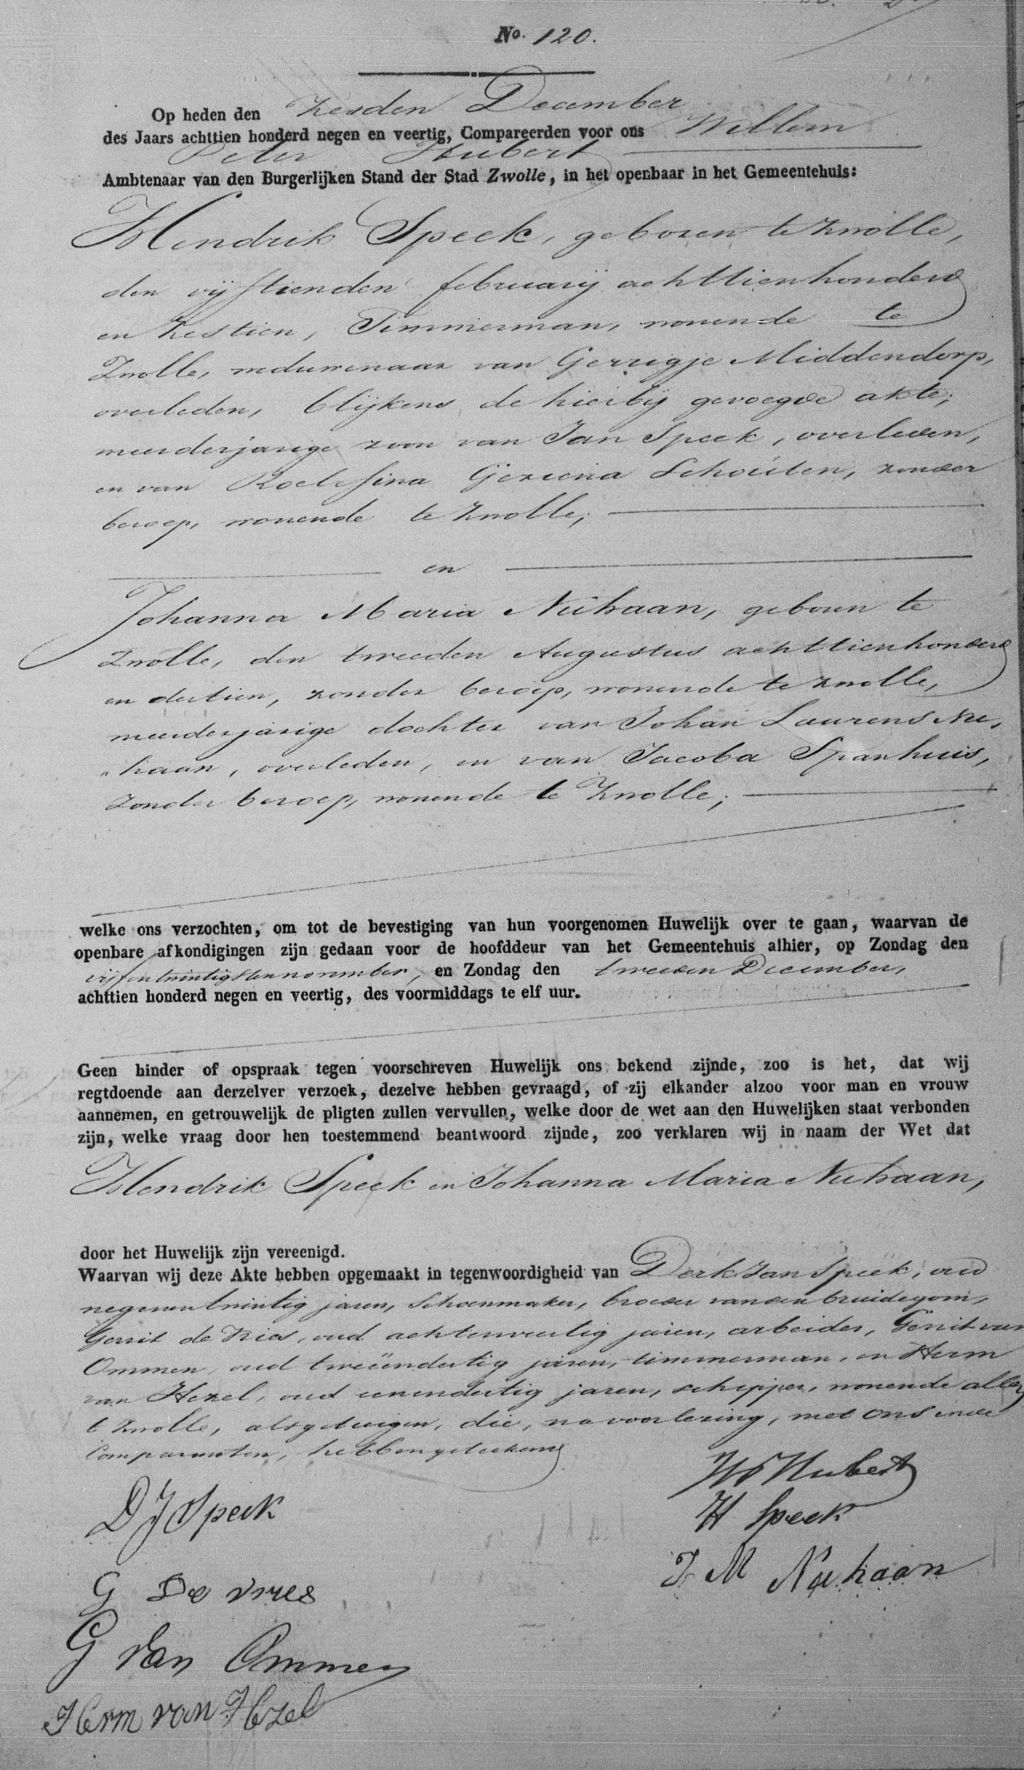 No. 120.
Op heden den zesden December
des Jaars achttien honderd negen en veertig, Compareerden voor ons Willem
Peter Hubert
Ambtenaar van den Burgerlijken Stand der Stad Zwolle, in het openbaar in het Gemeentehuis:
Hendrik Speek, geboren te Zwolle,
den vijftienden februarij achttienhonderd
en zestien, Timmerman, wonende te
Zwolle, weduwenaar van Gerrigje Middendorp,
overleden, blijkens de hierbij gevoegde akte,
meerderjarige zoon van Jan Speek, overleden,
en van Roelofsina Geziena Schouten, zonder
beroep, wonende te Zwolle;
en
Johanna Maria Nuhaan, geboren te
Zwolle, den tweeden Augustus achttienhonderd
en dertien, zonder beroep, wonende te Zwolle,
meerderjarige dochter van Johan Laurens Nu-
"haan, overleden, en van Jacoba Spanhuis,
zonder beroep, wonende te Zwolle;
welke ons verzochten, om tot de bevestiging van hun voorgenomen Huwelijk over te gaan, waarvan de
openbare afkondigingen zijn gedaan voor de hoofddeur van het Gemeentehuis alhier, op Zondag den
vijfentwintigsten november, en Zondag den tweeden December,
achttien honderd negen en veertig, des voormiddags te elf uur.
Geen hinder of opspraak tegen voorschreven Huwelijk ons bekend zijnde, zoo is het, dat wij
regtdoende aan derzelver verzoek, dezelve hebben gevraagd, of zij elkander alzoo voor man en vrouw
aannemen, en getrouwelijk de pligten zullen vervullen, welke door de wet aan den Huwelijken staat verbonden
zijn, welke vraag door hen toestemmend beantwoord zijnde, zoo verklaren wij in naam der Wet dat
Hendrik Speek en Johanna Maria Nuhaan,
door het Huwelijk zijn vereenigd.
Waarvan wij deze Akte hebben opgemaakt in tegenwoordigheid van Derk Jan Speek, oud
negenentwintig jaren, Schoenmaker, broeder van den bruidegom,
Gerrit de Vries, oud achtenveertig jaren, arbeider, Gerrit van
Ommen, oud tweeendertig jaren, timmerman, en Herm
van Hezel, oud eenendertig jaren, schipper, wonende allen
te Zwolle, als getuigen, die, na voorlezing, met ons en de
Comparanten, hebben geteekend
W P Hubert
D J Speek
H Speek
J. M Nuhaan
G De Vries
G van Ommen
Herm van Hezel